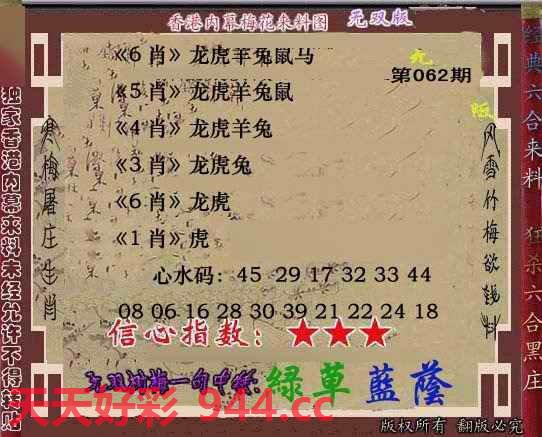 香港内幕梅花来料图 无双版
《6 肖》龙虎羊兔鼠马
第062期
《5 肖》龙虎羊兔鼠
《4 肖》龙虎羊兔
《3 肖》龙虎兔
《6 肖》龙虎
《1 肖》虎
心水码：45 29 17 32 33 44
08 06 16 28 30 39 21 22 24 18
信心指数：★★★
绿草 蓝蔭
天天好彩 944.cc
版权所有 翻版必究
独家香港内幕来料未经允许不得转贴
寒梅屠庄生肖
风雪竹梅欲钱料
经典六合来料 狂杀六合黑庄